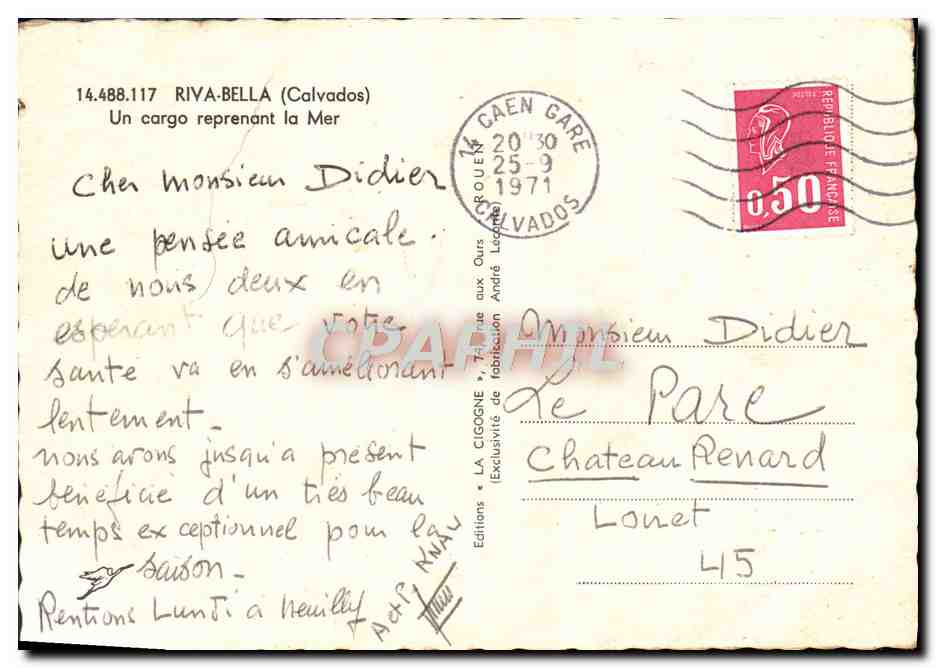 14.488.117 RIVA-BELLA (Calvados)
Un cargo reprenant la Mer
Cher Monsieur Didier
une pensée amicale.
de nous deux en
espérant que votre
santé va en s'améliorant
lentement.
nous avons jusqu'a présent
bénéficié d'un très beau
temps exceptionnel pour la
saison_
Rentrons Lundi à Neuilly
A et P
14 CAEN GARE
20H30
25-9
1971
CALVADOS
REPUBLIQUE FRANÇAISE
0,50
Editions « LA CIGOGNE », 74, rue aux Ours ROUEN
(Exclusivité de fabrication André Leconte)
CPAPHIL
Monsieur Didier
Le Parc
Chateau Renard
Loiret
45